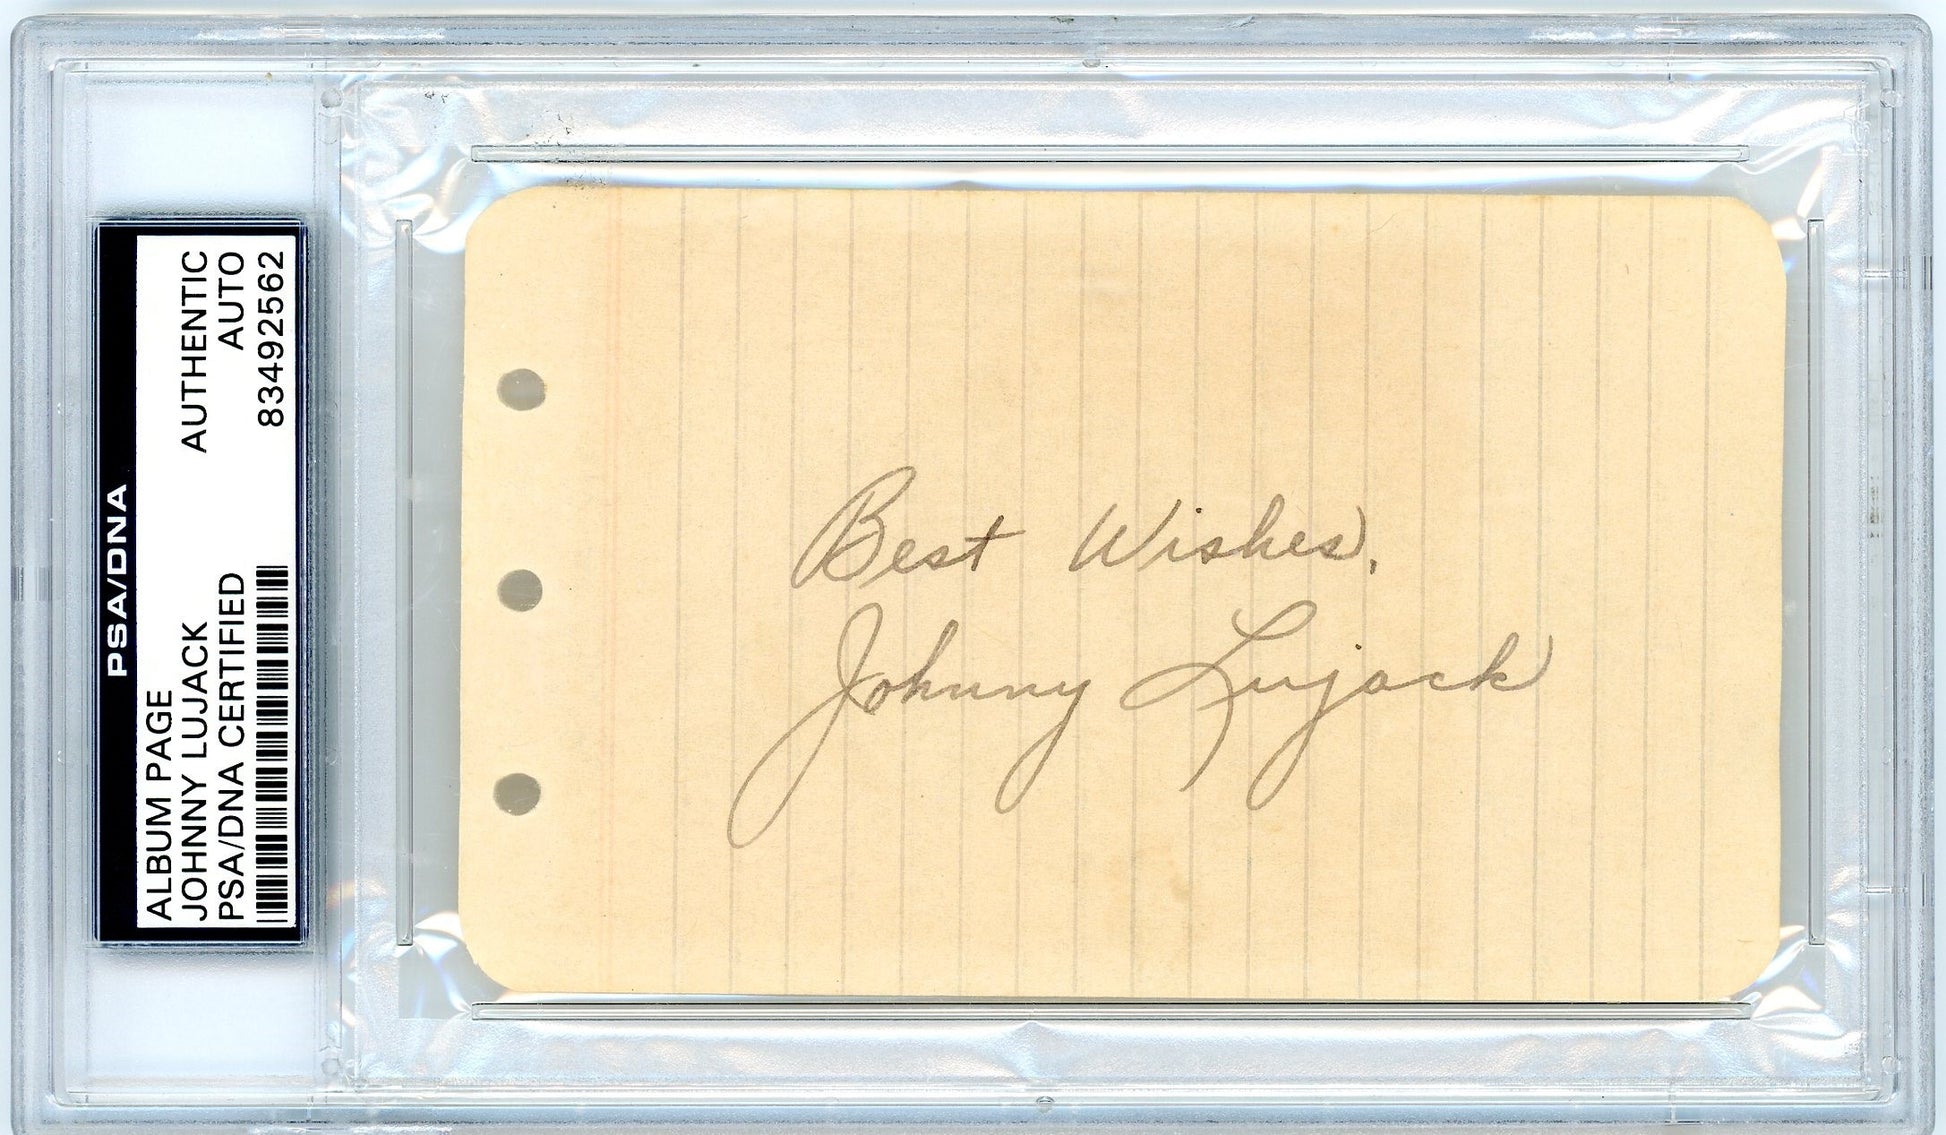 PSA/DNA
ALBUM PAGE AUTHENTIC
JOHNNY LUJACK AUTO
PSA/DNA CERTIFIED 83492562
Best Wishes,
Johnny Lujack